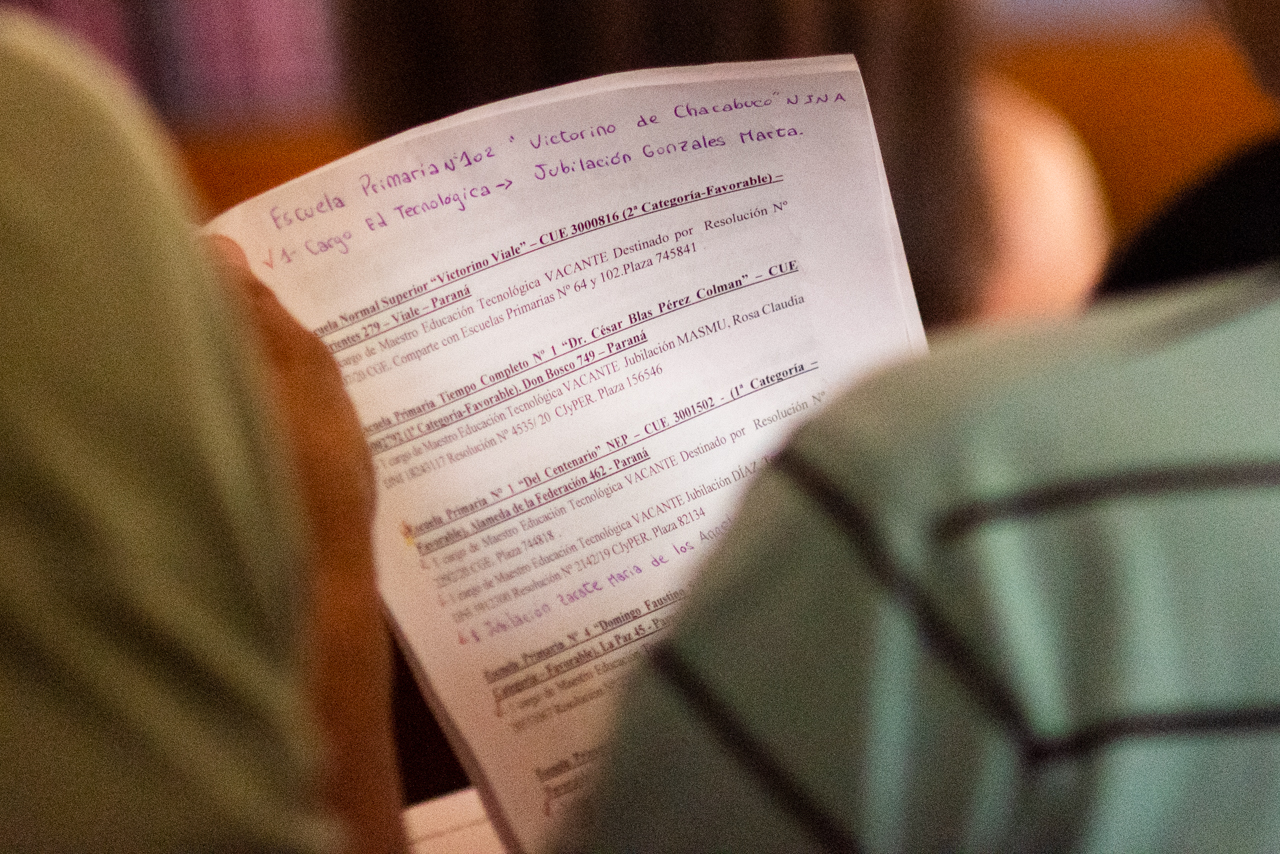 Escuela Primaria N°102 "Victorino de Chacabuco" NINA
√ 1- Cargo Ed Tecnológica → Jubilación Gonzales Marta.
Normal Superior "Victorino Viale" – CUE 3000816 (2ª Categoría-Favorable) –
279 – Viale – Paraná
cargo de Maestro Educación Tecnológica VACANTE Destinado por Resolución Nº
CGE. Comparte con Escuelas Primarias Nº 64 y 102.Plaza 745841
Escuela Primaria Tiempo Completo Nº 1 "Dr. César Blas Pérez Colman" – CUE
(1ª Categoría-Favorable). Don Bosco 749 – Paraná
1 cargo de Maestro Educación Tecnológica VACANTE Jubilación MASMU, Rosa Claudia
Resolución Nº 4535/ 20 CJyPER. Plaza 156546
Escuela Primaria Nº 1 "Del Centenario" NEP – CUE 3001502 - (1ª Categoría –
Favorable). Alameda de la Federación 462 - Paraná
1 cargo de Maestro Educación Tecnológica VACANTE Destinado por Resolución Nº
CGE. Plaza 744818 .
1 cargo de Maestro Educación Tecnológica VACANTE Jubilación DÍAZ
Resolución Nº 2142/19 CJyPER. Plaza 82134
Jubilación Zarate Maria de los
Escuela Primaria Nº 4 "Domingo Faustino
Favorable). La Paz 45 -
cargo de Maestro